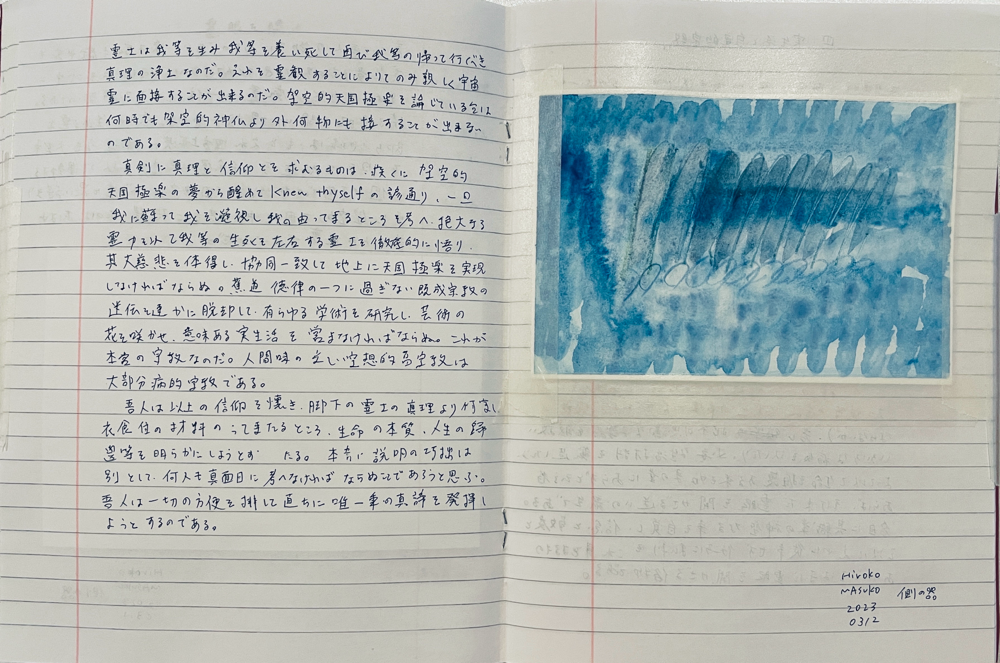 霊土は我等を生み我等を養い死して再び我等の帰って行くべき
真理の浄土なのだ。それを霊観することによりてのみ親しく宇宙
霊に面接することが出来るのだ。架空的天国極楽を論じている
何時でも架空的神仏より外何物にも接することが出来ない
のである。
真剣に真理と信仰とを求むるものは、疾くに架空的
天国極楽の夢から醒めて Know thyself の諺通り、一旦
我に蘇って我を凝視し我の由って来るところを考へ、絶大なる
霊力を以て我等の生死を左右する霊土を徹底的に悟り、
其大慈悲を体得し、協同一致して地上に天国極楽を実現
しなければならぬ。 道徳律の一つに過ぎない既成宗教の
迷伝を速かに脱却して、有らゆる学術を研究し、芸術の
花を咲かせ、意味ある実生活を営まなければならぬ。これが
本当の宗教なのだ。人間味の乏しい空想的 宗教は
大部分病的宗教である。
吾人は以上の信仰を懐き、脚下の霊土の真理より
衣食住の材料のよってきたるところ、生命の本質、人生の帰
趣等を明らかにしようとす たる。本音に説明の巧拙は
別として、何人も真面目に考へなければならぬことであろうと思ふ。
吾人は一切の方便を排して直ちに唯一乗の真諦を発揮し
ようとするのである。
Hiroko
MASUKO
2023
0312
側の器